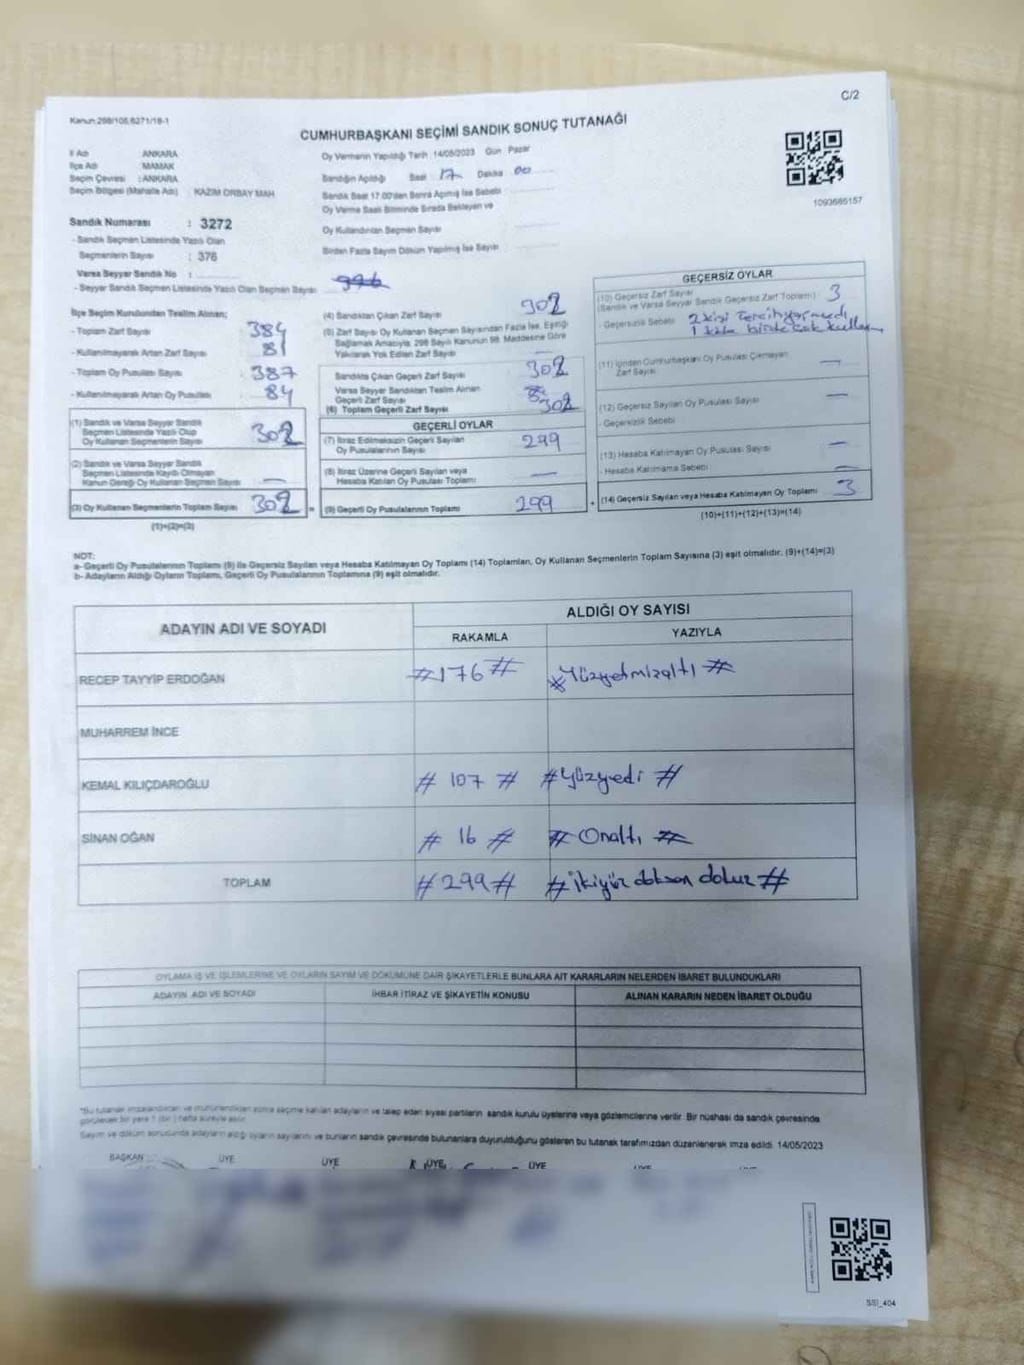 C/2
Kanun:298/105,6271/18-1
CUMHURBAŞKANI SEÇİMİ SANDIK SONUÇ TUTANAĞI
İl Adı ANKARA
İlçe Adı MAMAK
Seçim Çevresi : ANKARA
Seçim Bölgesi (Mahalle Adı) KAZIM ORBAY MAH
Oy Vermenin Yapıldığı Tarih :14/05/2023 Gün Pazar
Sandığın Açıldığı Saat 17 Dakika 00
Sandık Saat 17:00'den Sonra Açılmış İse Sebebi
Oy Verme Saati Bitiminde Sırada Bekleyen ve
Oy Kullandırılan Seçmen Sayısı
Birden Fazla Sayım Döküm Yapılmış İse Sayısı
1093665157
Sandık Numarası : 3272
- Sandık Seçmen Listesinde Yazılı Olan
Seçmenlerin Sayısı : 376
Varsa Seyyar Sandık No :
- Seyyar Sandık Seçmen Listesinde Yazılı Olan Seçmen Sayısı
İlçe Seçim Kurulundan Teslim Alınan;
- Toplam Zarf Sayısı 384
- Kullanılmayarak Artan Zarf Sayısı 81
- Toplam Oy Pusulası Sayısı 387
- Kullanılmayarak Artan Oy Pusulası 84
(1) Sandık ve Varsa Seyyar Sandık
Seçmen Listesinde Yazılı Olup
Oy Kullanan Seçmenlerin Sayısı 302
(2) Sandık ve Varsa Seyyar Sandık
Seçmen Listesinde Kaydı Olmayan
Kanun Gereği Oy Kullanan Seçmenlerin Sayısı —
(3) Oy Kullanan Seçmenlerin Toplam Sayısı 302
(1)+(2)=(3)
(4) Sandıktan Çıkan Zarf Sayısı 302
(5) Zarf Sayısı Oy Kullanan Seçmen Sayısından Fazla İse, Eşitliği
Sağlamak Amacıyla, 298 Sayılı Kanunun 98. Maddesine Göre
Yakılarak Yok Edilen Zarf Sayısı —
Sandıkta Çıkan Geçerli Zarf Sayısı 302
Varsa Seyyar Sandıktan Teslim Alınan
Geçerli Zarf Sayısı
(6) Toplam Geçerli Zarf Sayısı 302
GEÇERLİ OYLAR
(7) İtiraz Edilmeksizin Geçerli Sayılan
Oy Pusulası Sayısı 299
(8) İtiraz Üzerine Geçerli Sayılan veya
Hesaba Katılan Oy Pusulası Toplamı —
(9) Geçerli Oy Pusulalarının Toplamı 299
GEÇERSİZ OYLAR
(10) Geçersiz Zarf Sayısı
(Sandık ve Varsa Seyyar Sandık Geçersiz Zarf Toplamı) 3
- Geçersizlik Sebebi 2 kişi Tercih yapmadı
1 kişi birden çok kullanım
(11) İçinden Cumhurbaşkanı Oy Pusulası Çıkmayan
Zarf Sayısı —
(12) Geçersiz Sayılan Oy Pusulası Sayısı —
- Geçersizlik Sebebi
(13) Hesaba Katılmayan Oy Pusulası Sayısı —
- Hesaba Katılmama Sebebi —
(14) Geçersiz Sayılan veya Hesaba Katılmayan Oy Toplamı 3
(10)+(11)+(12)+(13)=(14)
NOT:
a- Geçerli Oy Pusulalarının Toplamı (9) ile Geçersiz Sayılan veya Hesaba Katılmayan Oy Toplamı (14) Toplamları, Oy Kullanan Seçmenlerin Toplam Sayısına (3) eşit olmalıdır. (9)+(14)=(3)
b- Adayların Aldığı Oyların Toplamı, Geçerli Oy Pusulalarının Toplamına (9) eşit olmalıdır.
ADAYIN ADI VE SOYADI
ALDIĞI OY SAYISI
RAKAMLA YAZIYLA
RECEP TAYYİP ERDOĞAN #176# #Yüzyetmişaltı#
MUHARREM İNCE
KEMAL KILIÇDAROĞLU #107# #Yüzyedi#
SİNAN OĞAN #16# #Onaltı#
TOPLAM #299# #ikiyüz doksan dokuz#
OYLAMA İŞ VE İŞLEMLERİNE VE OYLARIN SAYIM VE DÖKÜMÜNE DAİR ŞİKAYETLERLE BUNLARA AİT KARARLARIN NELERDEN İBARET BULUNDUKLARI
ADAYIN ADI VE SOYADI İHBAR İTİRAZ VE ŞİKAYETİN KONUSU ALINAN KARARIN NEDEN İBARET OLDUĞU
*Bu tutanak imzalandıktan ve mühürlendikten sonra seçime katılan adayların ve talep eden siyasi partilerin sandık kurulu üyelerine veya gözlemcilerine verilir. Bir nüshası da sandık çevresinde
görülecek bir yere 1 (bir) hafta süreyle asılır.
Sayım ve döküm sonucunda adayların aldığı oyların sayılarını ve bunların sandık çevresinde bulunanlara duyurulduğunu gösteren bu tutanak tarafımızdan düzenlenerek imza edildi. 14/05/2023
BAŞKAN ÜYE ÜYE ÜYE ÜYE ÜYE ÜYE
SSI_404